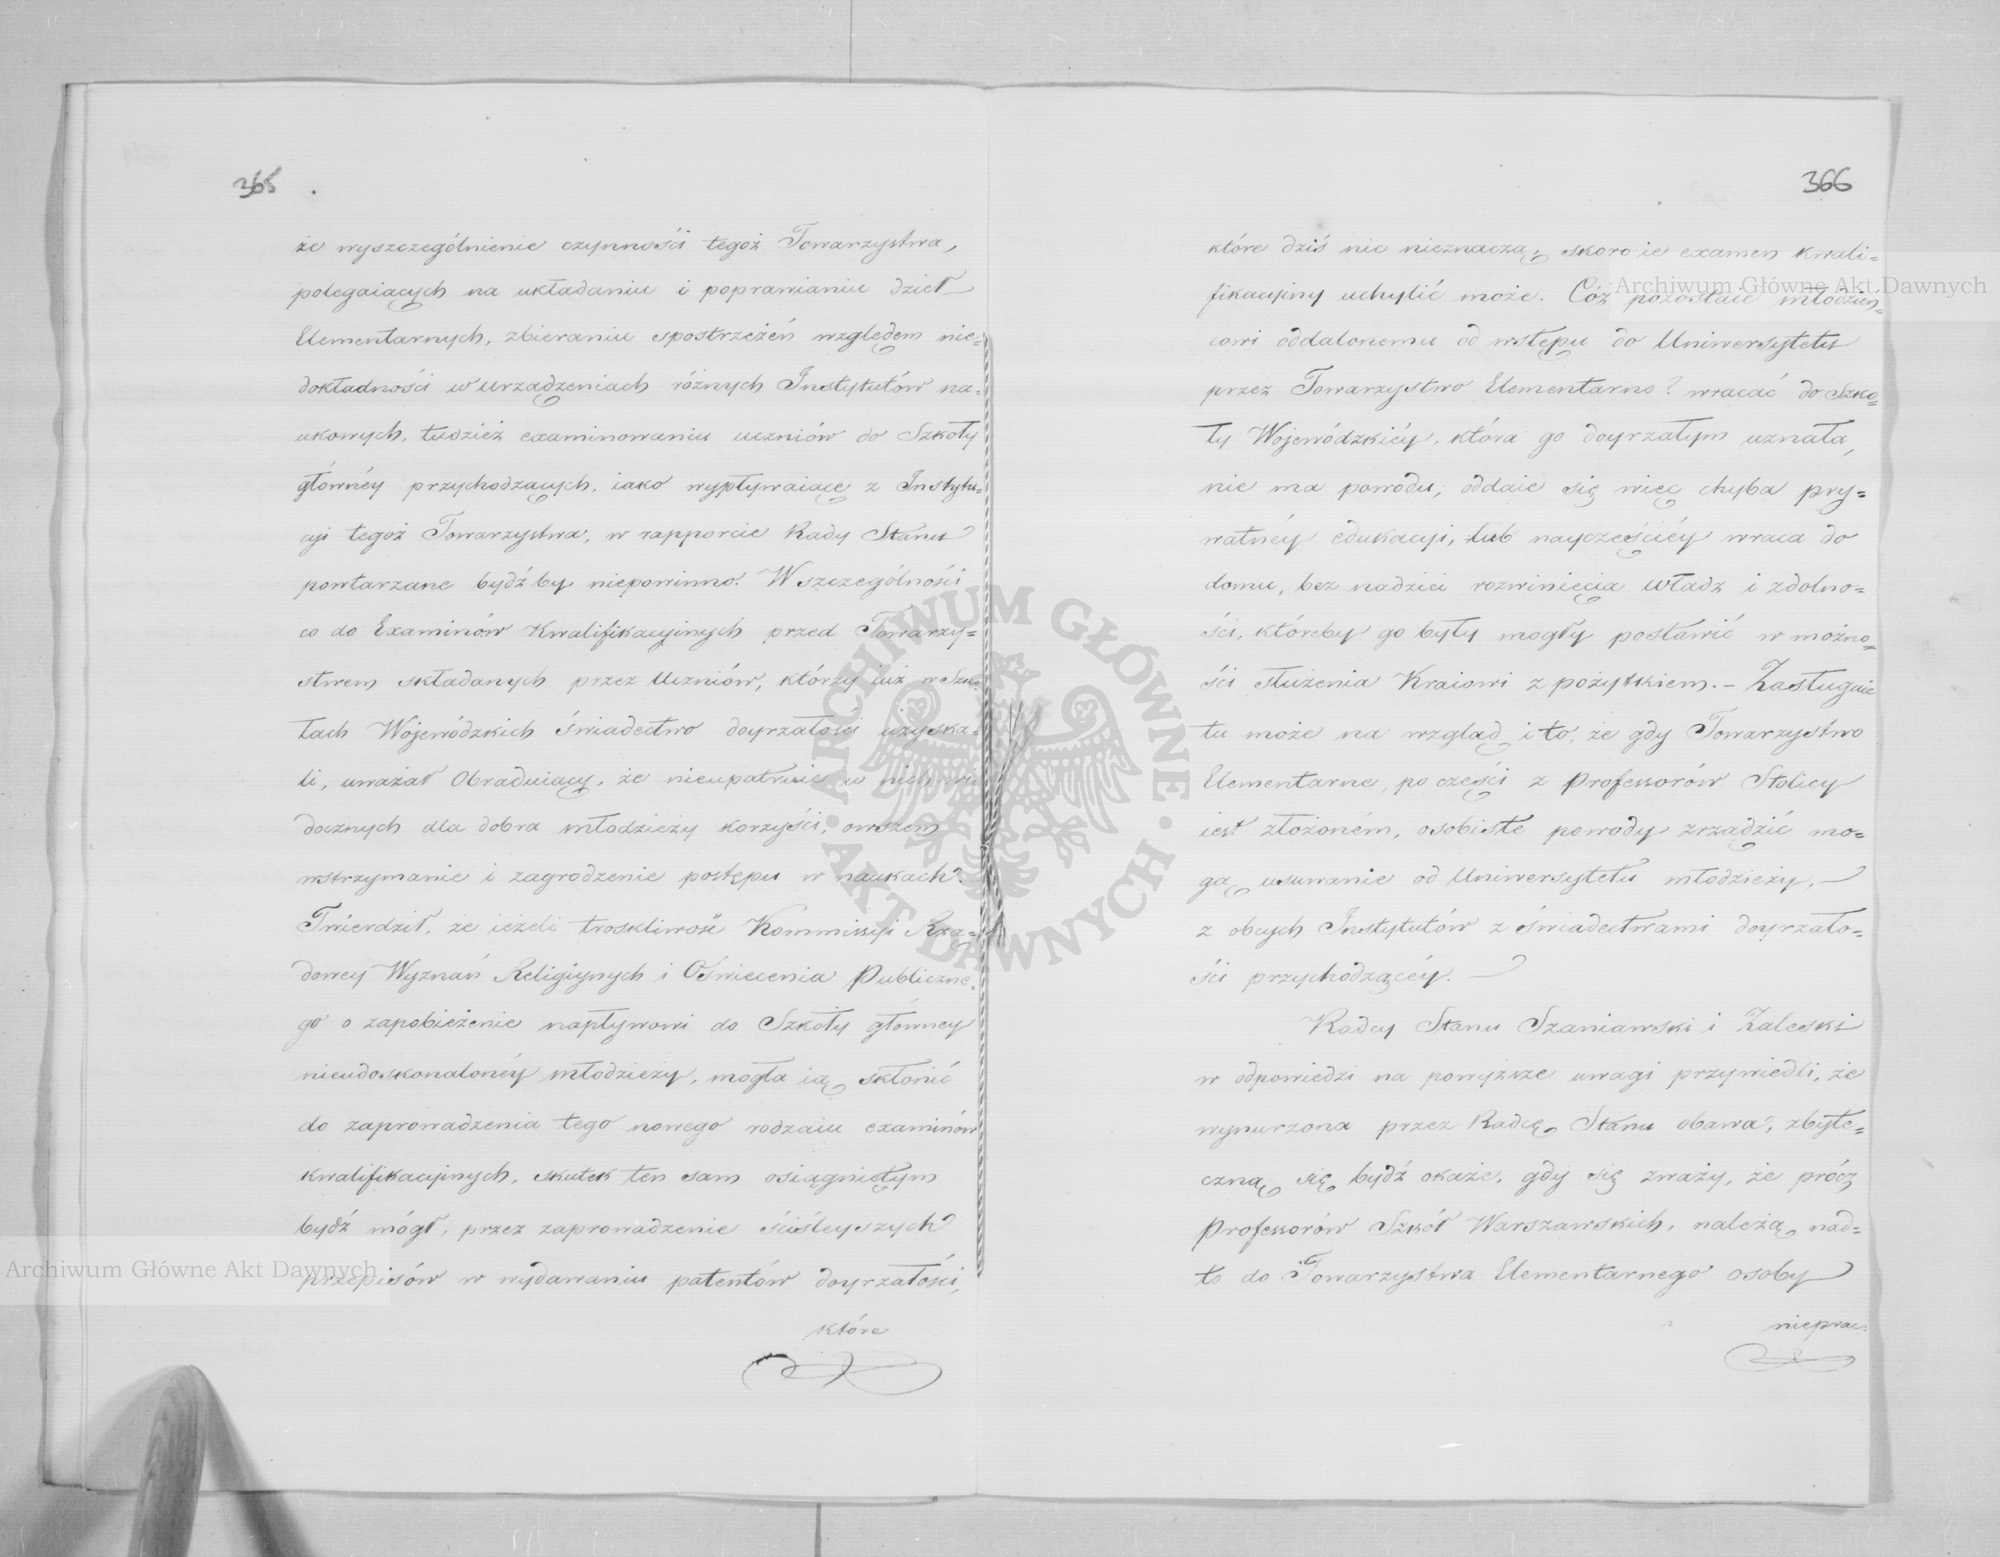 365
że wyszczególnienie czynności tegoż Towarzystwa,
polegaiących na układaniu i poprawianiu dzieł
Elementarnych, zbieraniu spostrzeżeń względem nie-
dokładności w urządzeniach różnych Instytutów na-
ukowych, tudzież examinowaniu uczniów do Szkoły
głównéy przychodzących, iako wypływaiące z Instytu-
cyi tegoż Towarzystwa, w rapporcie Rady Stanu
powtarzane bydźby niepowinno. W szczególności
co do Examinów Kwalifikacyinych przed Towarzy-
stwem składanych przez Uczniów, którzy iuż w Szko-
łach Wojewódzkich świadectwo doyrzałości uzyska-
li, uważał Obraduiący, że nieupatruie w nich wi-
docznych dla dobra młodzieży korzyści, owszem
wstrzymanie i zagrodzenie postępu w naukach.
Twierdził, że ieżeli troskliwość Kommissyi Rzą-
dowey Wyznań Religiynych i Oświecenia Publiczne-
go o zapobieżenie napływowi do Szkoły główney
nieudoskonalonéy młodzieży, mogła ią skłonić
do zaprowadzenia tego nowego rodzaiu examinów
kwalifikacyinych, skutek ten sam osiągniętym
bydź mógł, przez zaprowadzenie ściśleyszych
przepisów w wydawaniu patentów doyrzałości,
które
366
które dziś nic nieznaczą, skoro ie examen kwali-
fikacyiny uchylić może. Cóż pozostaie młodzień-
cowi oddalonemu od wstępu do Uniwersytetu
przez Towarzystwo Elementarne? wracać do Szko-
ły Wojewódzkiéy, która go doyrzałym uznała,
nie ma powodu, oddaie się więc chyba pry-
watnéy edukacyi, lub nayczęściéy wraca do
domu, bez nadziei rozwinięcia władz i zdolno-
ści, któreby go były mogły postawić w możno-
ści służenia Kraiowi z pożytkiem. – Zasługuie
tu może na wzgląd i to, że gdy Towarzystwo
Elementarne, po części z Professorów Stolicy
iest złożoném, osobiste powody zrządzić mo-
gą usuwanie od Uniwersytetu młodzieży, –
z obcych Instytutów z świadectwami doyrzało-
ści przychodzącéy. –
Radcy Stanu Szaniawski i Zaleski
w odpowiedzi na powyższe uwagi przywiedli, że
wynurzona przez Radcę Stanu obawa, zbyte-
czną się bydź okaże, gdy się zważy, że prócz
Professorów Szkół Warszawskich, należą nad-
to do Towarzystwa Elementarnego osoby
nieprac-
Archiwum Główne Akt Dawnych
Archiwum Główne Akt Dawnych
ARCHIWUM GŁÓWNE · AKT DAWNYCH ·